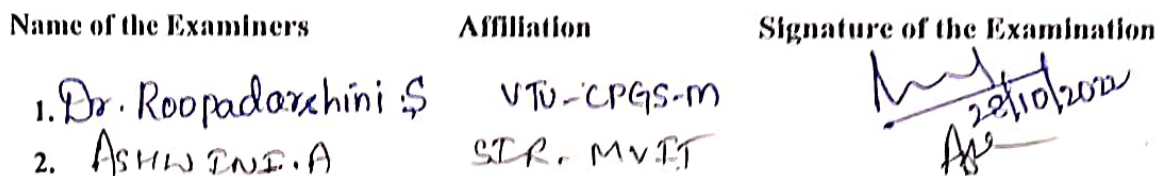 Name of the Examiners Affiliation Signature of the Examination
1. Dr. Roopadarshini S VTU-CPGS-m
2. ASHWINI.A SIR. MVIT